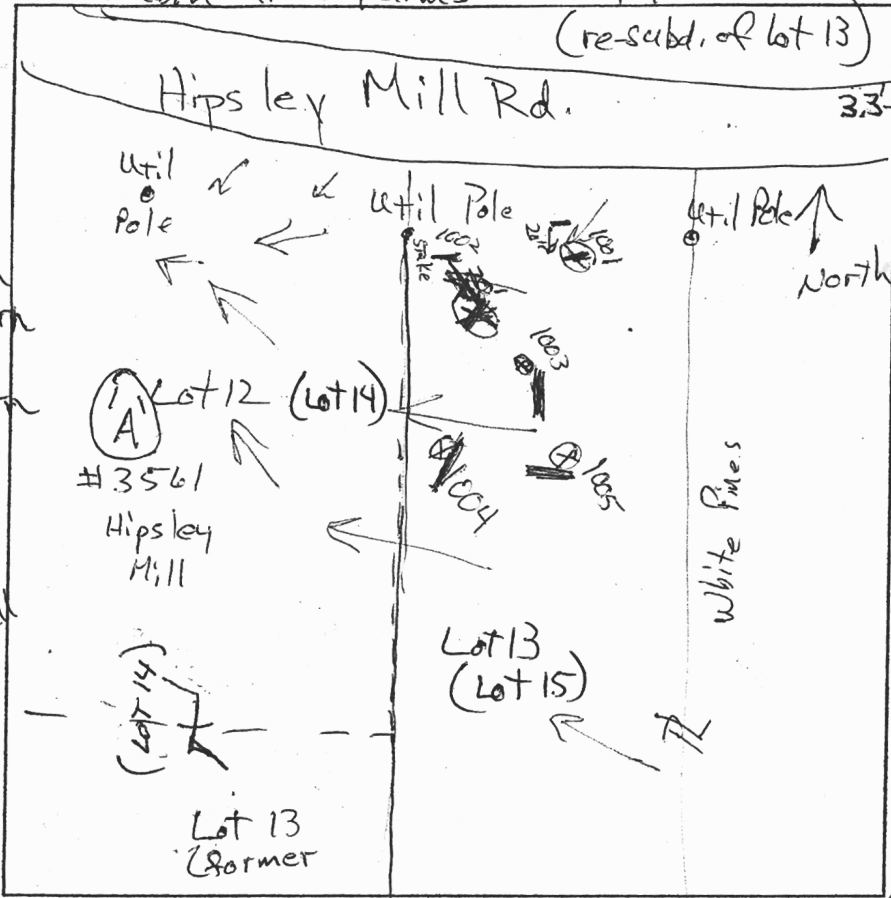 (re-subd. of Lot 13)
Hipsley Mill Rd.
33
Util
Pole
Util Pole
Util Pole
North
stake
1002
1001
1003
1004
1005
Lot 12 (Lot 14)
A
#3561
Hipsley
Mill
White Pines
Lot 13
(Lot 15)
PL
(Lot 14)
Lot 13
(former